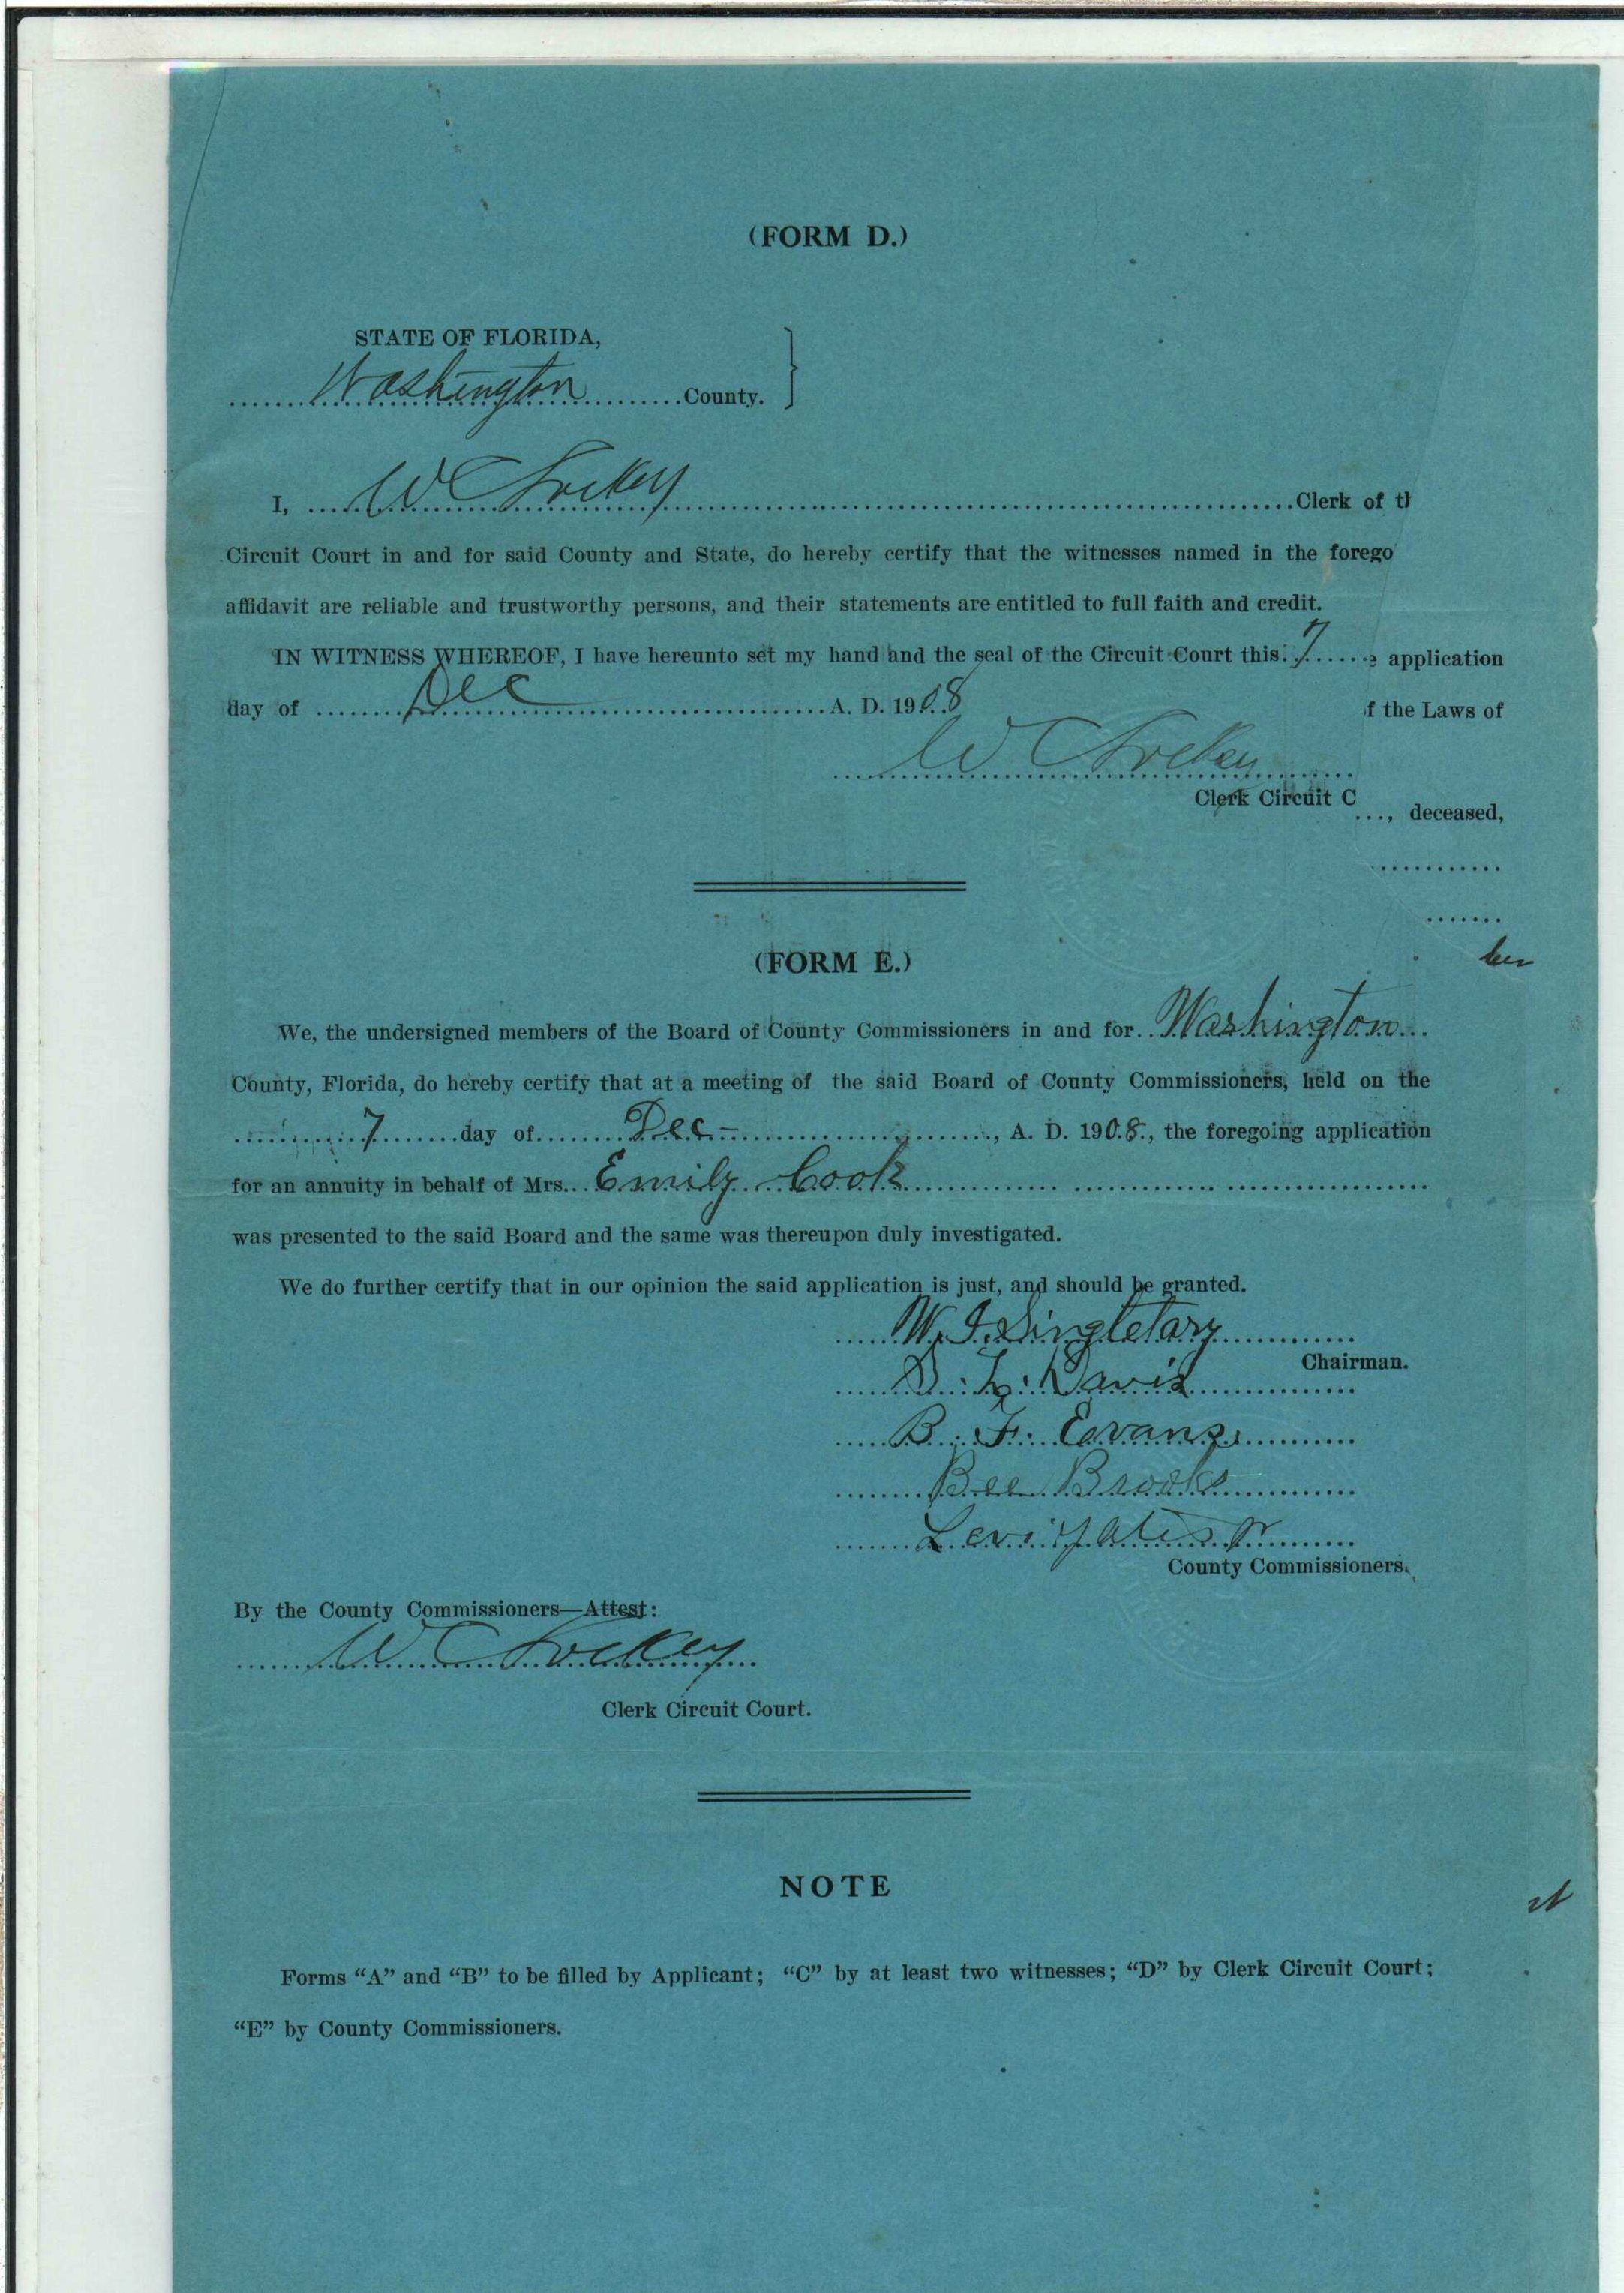 (FORM D.)
STATE OF FLORIDA,
Washington County.
I, W C Lockey Clerk of th
Circuit Court in and for said County and State, do hereby certify that the witnesses named in the forego
affidavit are reliable and trustworthy persons, and their statements are entitled to full faith and credit.
IN WITNESS WHEREOF, I have hereunto set my hand and the seal of the Circuit Court this 7
application
day of Dec A. D. 1908
f the Laws of
W C Lockey
Clerk Circuit C
, deceased,
(FORM E.)
We, the undersigned members of the Board of County Commissioners in and for Washington
County, Florida, do hereby certify that at a meeting of the said Board of County Commissioners, held on the
7 day of Dec, A. D. 1908, the foregoing application
for an annuity in behalf of Mrs. Emily Cook
was presented to the said Board and the same was thereupon duly investigated.
We do further certify that in our opinion the said application is just, and should be granted.
W. J. Singletary
Chairman.
Davis
B. F. Evans
Bee Brooks
Levi
County Commissioners.
By the County Commissioners—Attest:
W C Lockey
Clerk Circuit Court.
NOTE
Forms “A” and “B” to be filled by Applicant; “C” by at least two witnesses; “D” by Clerk Circuit Court;
“E” by County Commissioners.